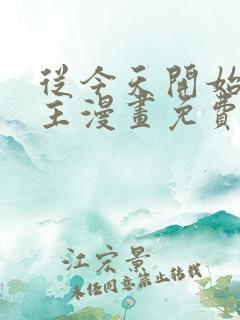 從今天開始
王漫畫免費
江宏景
未任同意禁止转载